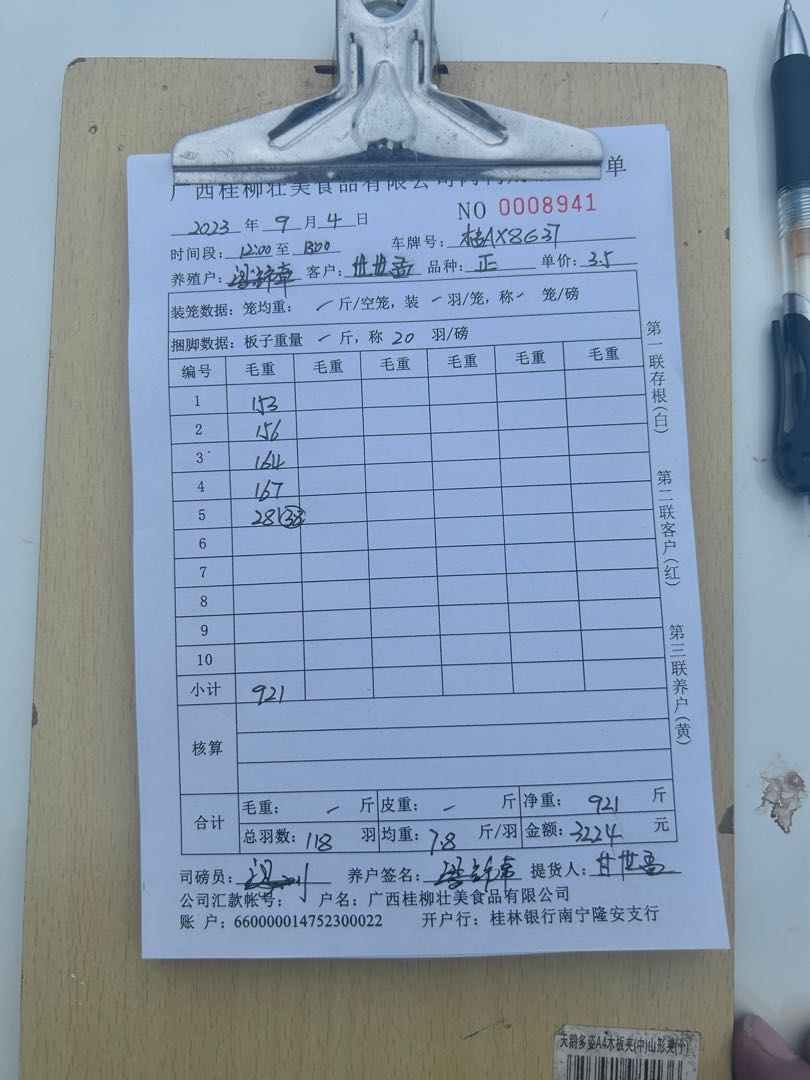 广西桂柳壮美食品有限公司 单
2023 年 9 月 4 日 NO 0008941
时间段: 12:00 至 13:00 车牌号: 桂AX8G37
养殖户: 客户: 甘世孟 品种: 正 单价: 3.5
装笼数据: 笼均重: / 斤/空笼, 装 / 羽/笼, 称 / 笼/磅
捆脚数据: 板子重量 / 斤, 称 20 羽/磅
编号 毛重 毛重 毛重 毛重 毛重 毛重
1 153
2 156
3 164
4 167
5 281 (38)
6
7
8
9
10
小计 921
核算
合计 毛重: / 斤 皮重: / 斤 净重: 921 斤
总羽数: 118 羽 均重: 7.8 斤/羽 金额: 3224 元
司磅员: 养户签名: 提货人: 甘世孟
公司汇款帐号: 户名: 广西桂柳壮美食品有限公司
账 户: 660000014752300022 开户行: 桂林银行南宁隆安支行
第一联存根(白)
第二联客户(红)
第三联养户(黄)
天鹅多姿A4木板夹(中)山形夹(个)